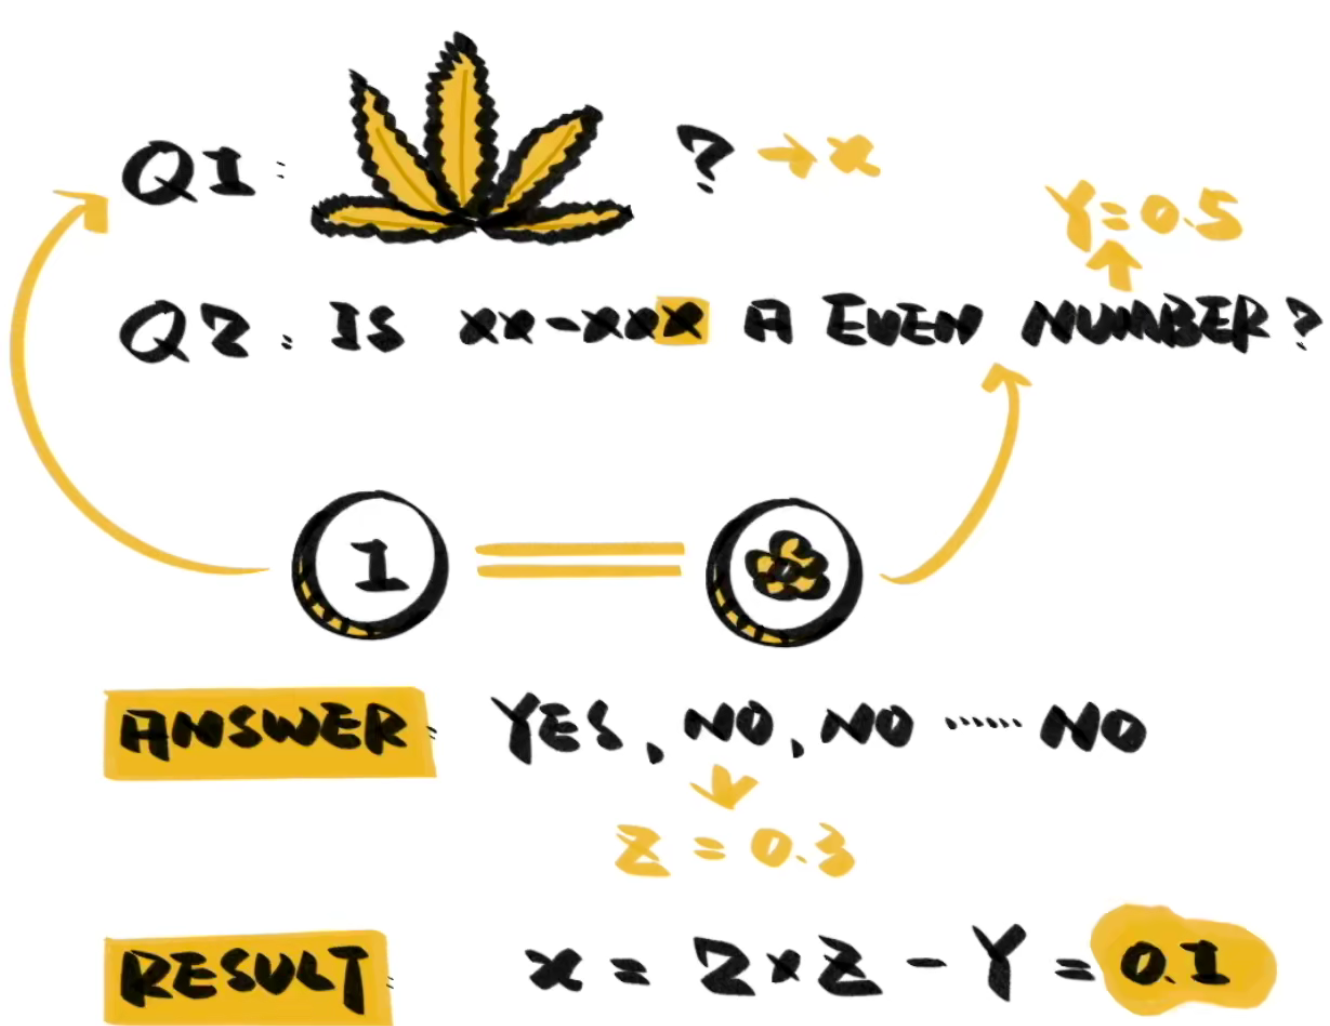 Q1: ? → x
Y=0.5
Q2: IS xx-xxx A EVEN NUMBER?
1
ANSWER: YES, NO, NO ...... NO
Z = 0.3
RESULT: x = 2×Z - Y = 0.1